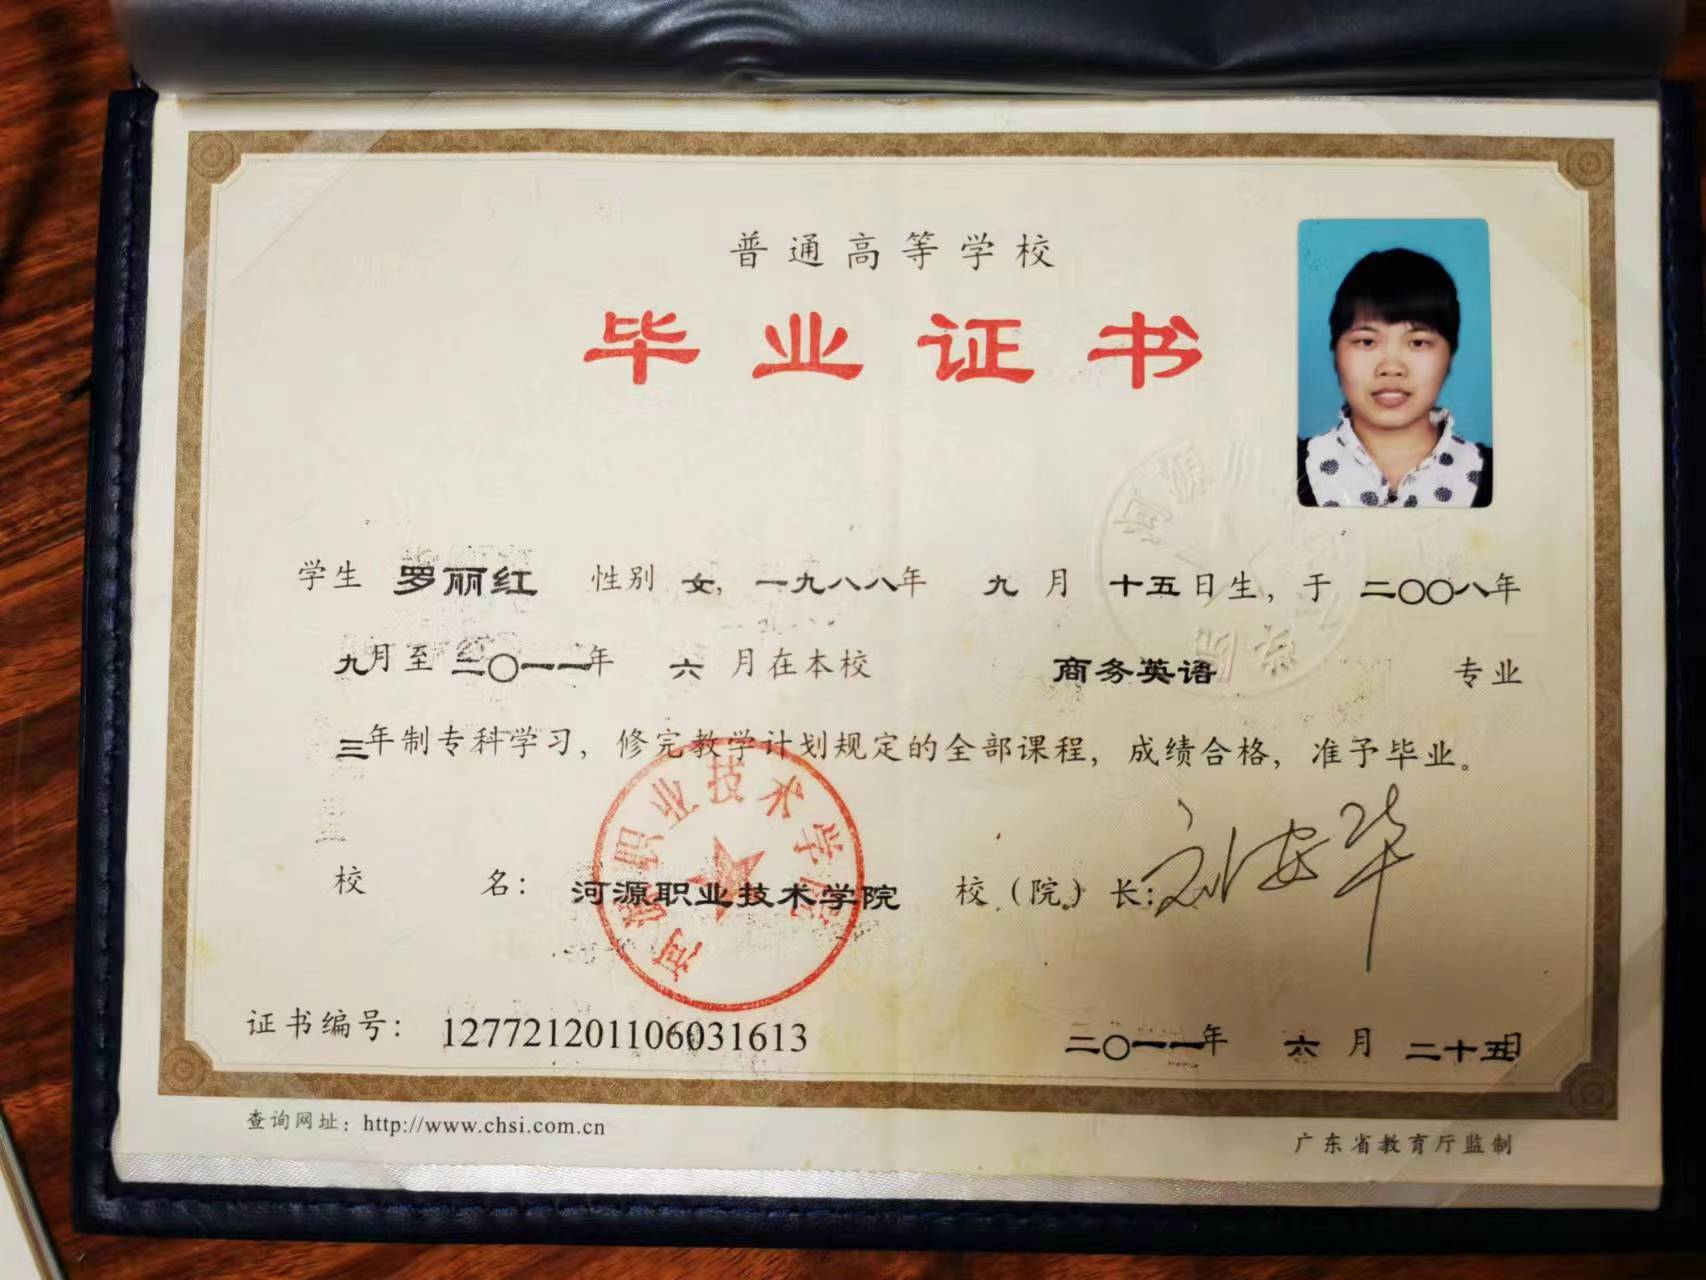 普通高等学校
毕业证书
学生 罗丽红 性别 女，一九八八年 九 月 十五日生，于 二〇〇八年
九月至二〇一一年 六 月在本校 商务英语 专业
三年制专科学习，修完教学计划规定的全部课程，成绩合格，准予毕业。
校 名：河源职业技术学院 校（院）长：刘安华
河源职业技术学院
证书编号：127721201106031613 二〇一一年 六 月 二十五日
查询网址：http://www.chsi.com.cn
广东省教育厅监制